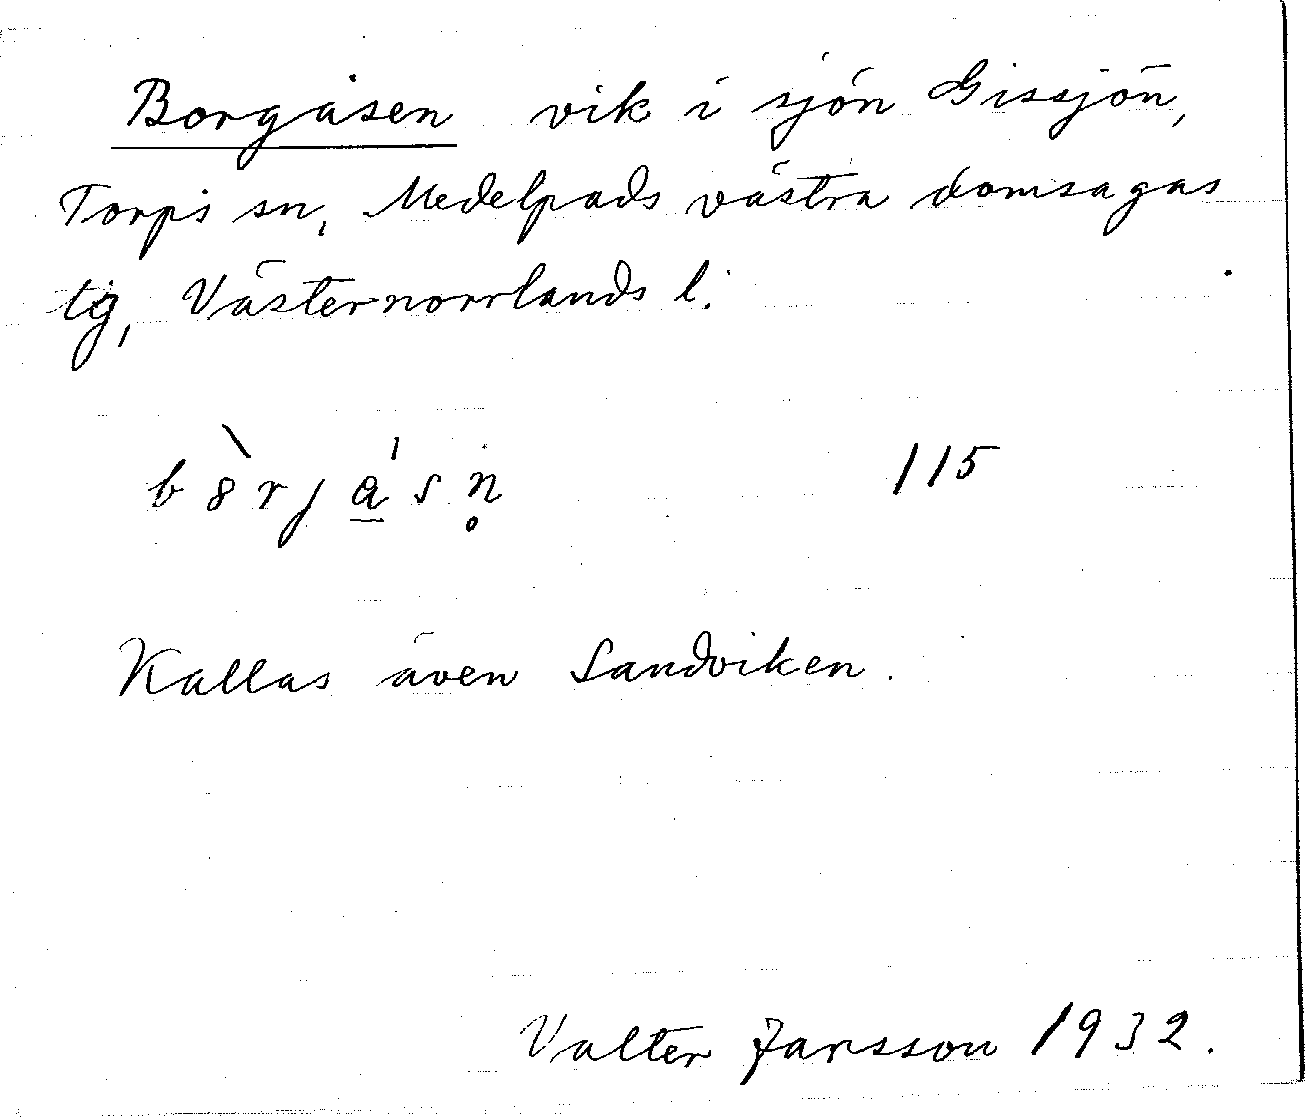 Borgåsen vik i sjön Gissjön,
Torps sn, Medelpads västra domsagas
tg, Västernorrlands l.
b8̀rja̲'sn̥ 115
Kallas även Sandviken.
Valter Jansson 1932.